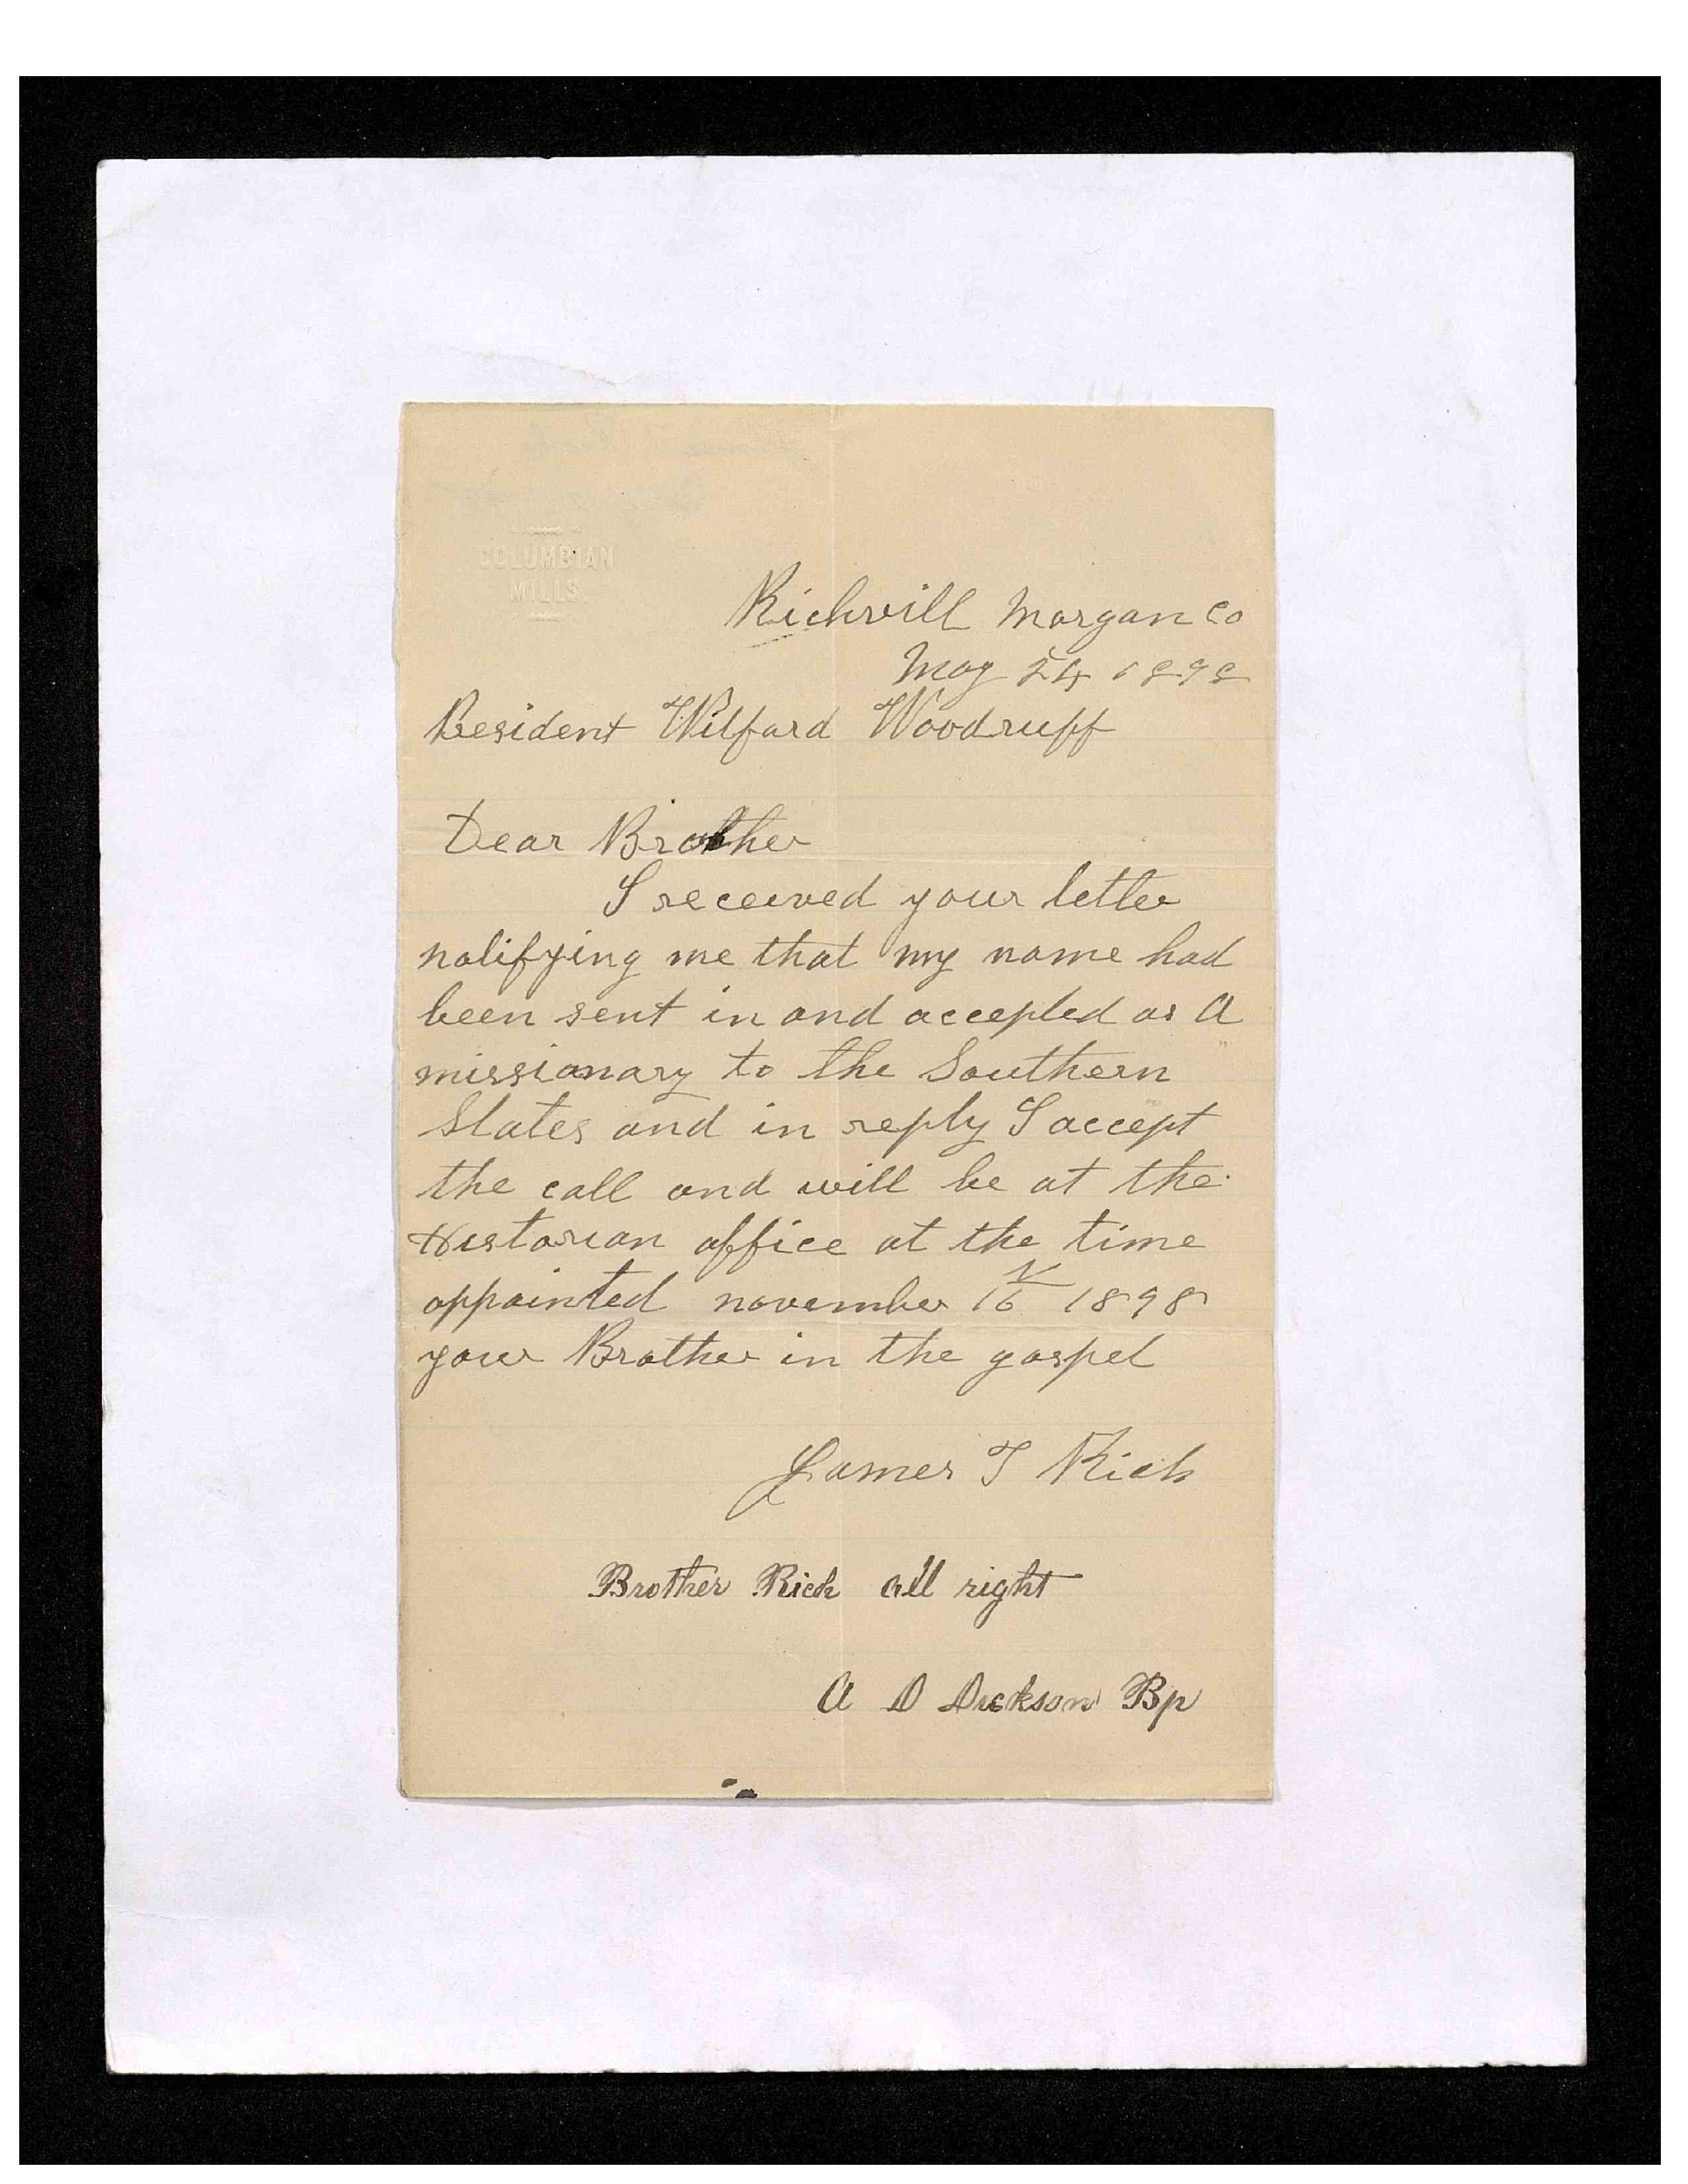 COLUMBIAN
MILLS
Richvill Morgan Co
May 24 1898
President Wilford Woodruff
Dear Brother
I received your letter
notifying me that my name had
been sent in and accepted as A
missionary to the Southern
States and in reply I accept
the call and will be at the
Historian office at the time
appointed november 16 1898
your Brother in the gospel
James T Rich
Brother Rich all right
A D Dickson Bp